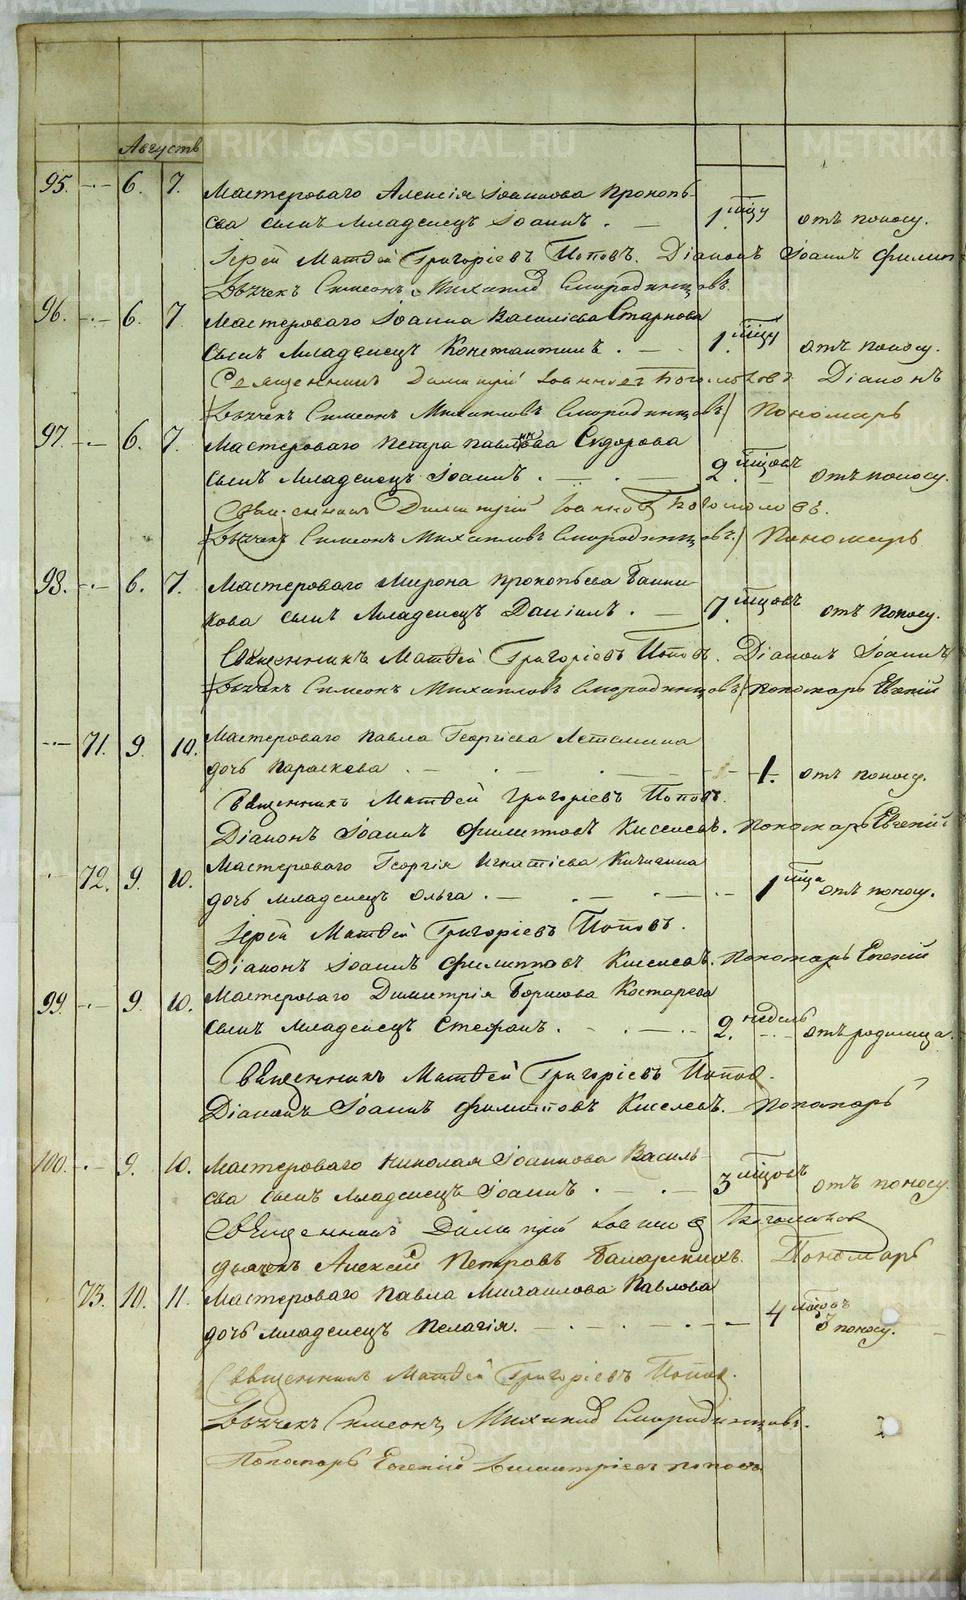 Августъ
95. 6. 7. Мастероваго Алексія Іоаннова Прокопь-
ева сынъ младенецъ Іоаннъ. 1 мцу отъ поносу.
Іерей Матѳей Григоріевъ Поповъ. Діаконъ Іоаннъ Филип
Дьячекъ Симеонъ Михайлов Смородинцовъ.
96. 6. 7. Мастероваго Іоанна Васильева Старкова
сынъ младенецъ Константинъ. 1 мцу отъ поносу.
Священникъ Димитрій Іоанновъ Діаконъ
Дьячекъ Симеонъ Михайловъ Смородинцовъ Пономарь
97. 6. 7. Мастероваго Петра Павлова Сидорова
сынъ младенецъ Іоаннъ. 2 мцовъ отъ поносу.
Священникъ Димитрій Іоанновъ
Дьячекъ Симеонъ Михайловъ Смородинцовъ. Пономарь
98. 6. 7. Мастероваго Мирона Прокопьева Банни-
кова сынъ младенецъ Даніилъ. 7 мцовъ отъ поносу.
Священникъ Матѳей Григоріевъ Поповъ. Діаконъ Іоаннъ
Дьячекъ Симеонъ Михайловъ Смородинцовъ Пономарь Евгеній
71. 9. 10. Мастероваго Павла Георгіева Летемина
дочь Параскева. 1. отъ поносу.
Священникъ Матѳей Григоріевъ Поповъ.
Діаконъ Іоаннъ Филипповъ Киселевъ. Пономарь Евгеній
72. 9. 10. Мастероваго Георгія Игнатіева Кичигина
дочь младенецъ Ольга. 1 мца отъ поносу.
Іерей Матѳей Григоріевъ Поповъ.
Діаконъ Іоаннъ Филипповъ Киселевъ. Пономарь Евгеній
99. 9. 10. Мастероваго Димитрія Борисова Костарева
сынъ младенецъ Стефанъ. 2. недель отъ родимца.
Священникъ Матѳей Григоріевъ Попов.
Діаконъ Іоаннъ Филипповъ Киселевъ. Пономарь
100. 9. 10. Мастероваго Николая Іоаннова Василь-
ева сынъ младенецъ Іоаннъ. 3 мцовъ отъ поносу.
Священникъ Димитрій Іоаннов
дьячекъ Алексей Петровъ Пономарь
73. 10. 11. Мастероваго Павла Михаилова Павлова
дочь младенецъ Пелагія. 4 поносу.
Священникъ Матѳей Григоріевъ Попов.
Дьячекъ Симеонъ Михайлов Смородинцовъ.
Пономарь Евгеній Димитріевъ Поповъ
METRIKI.GASO-URAL.RU